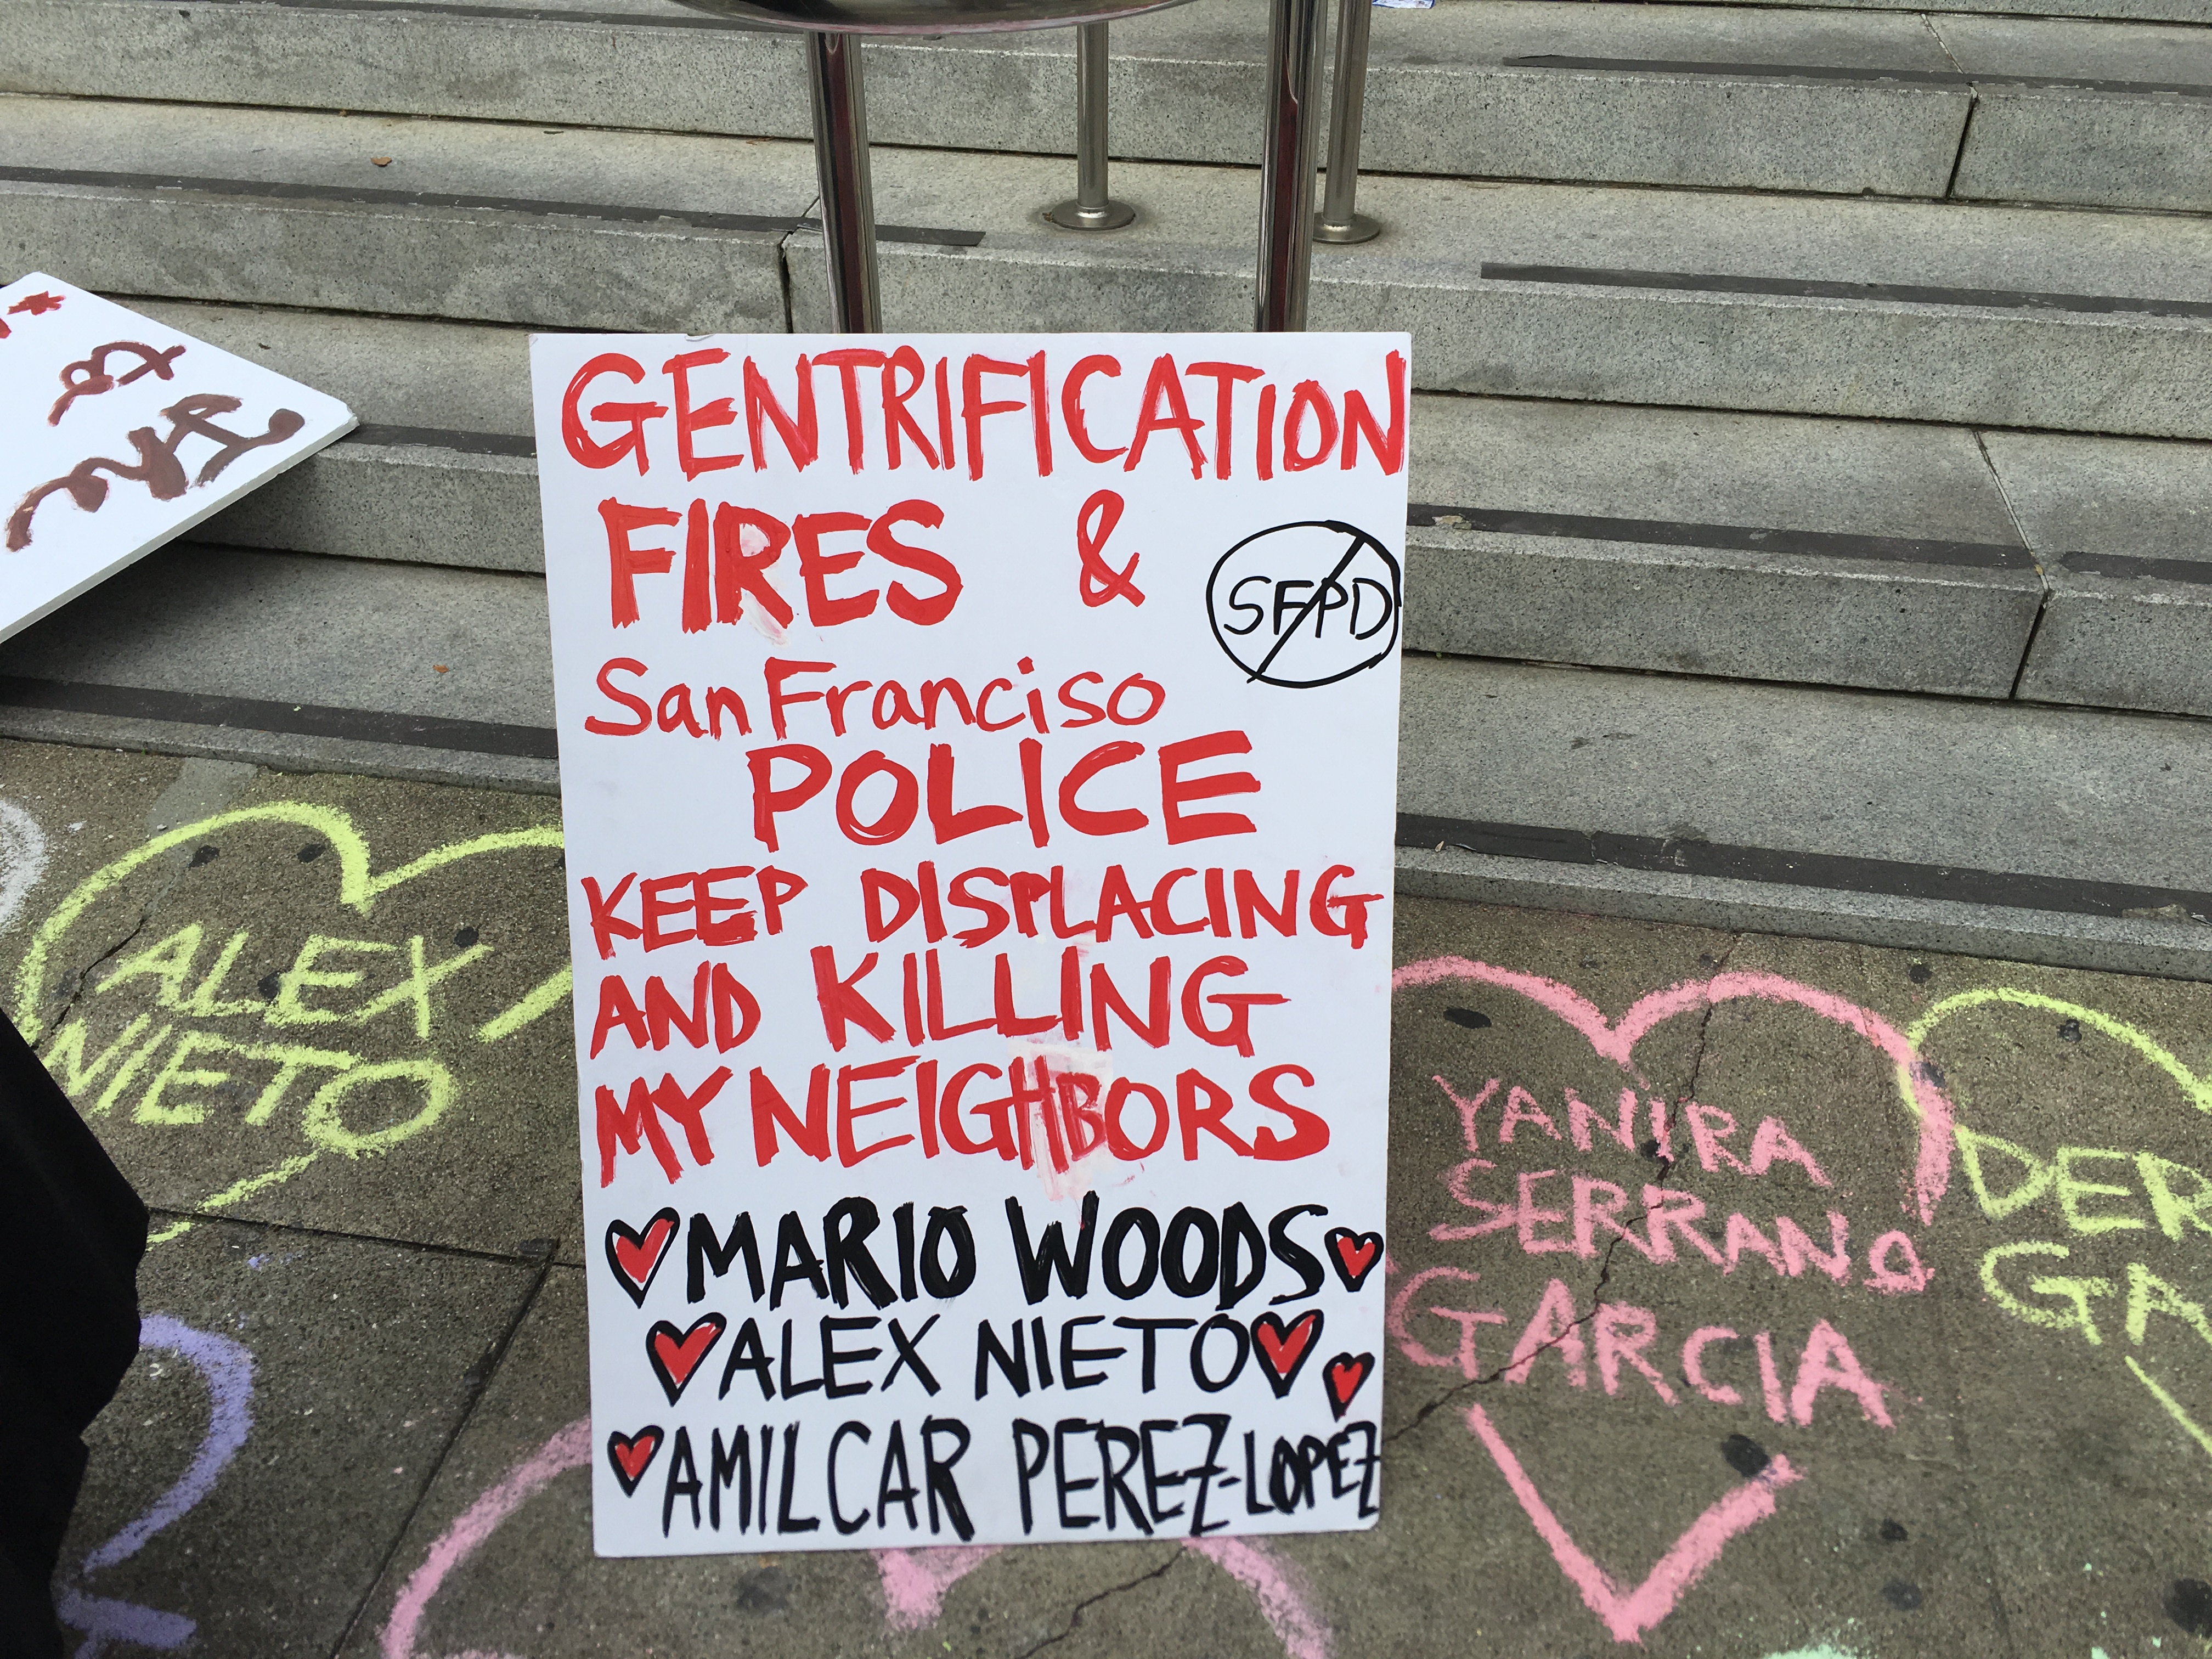 GENTRIFICATION
FIRES &
SFPD
San Franciso
POLICE
KEEP DISPLACING
AND KILLING
MY NEIGHBORS
MARIO WOODS
ALEX NIETO
AMILCAR PEREZ-LOPEZ
ALEX
NIETO
YANIRA
SERRANO
GARCIA